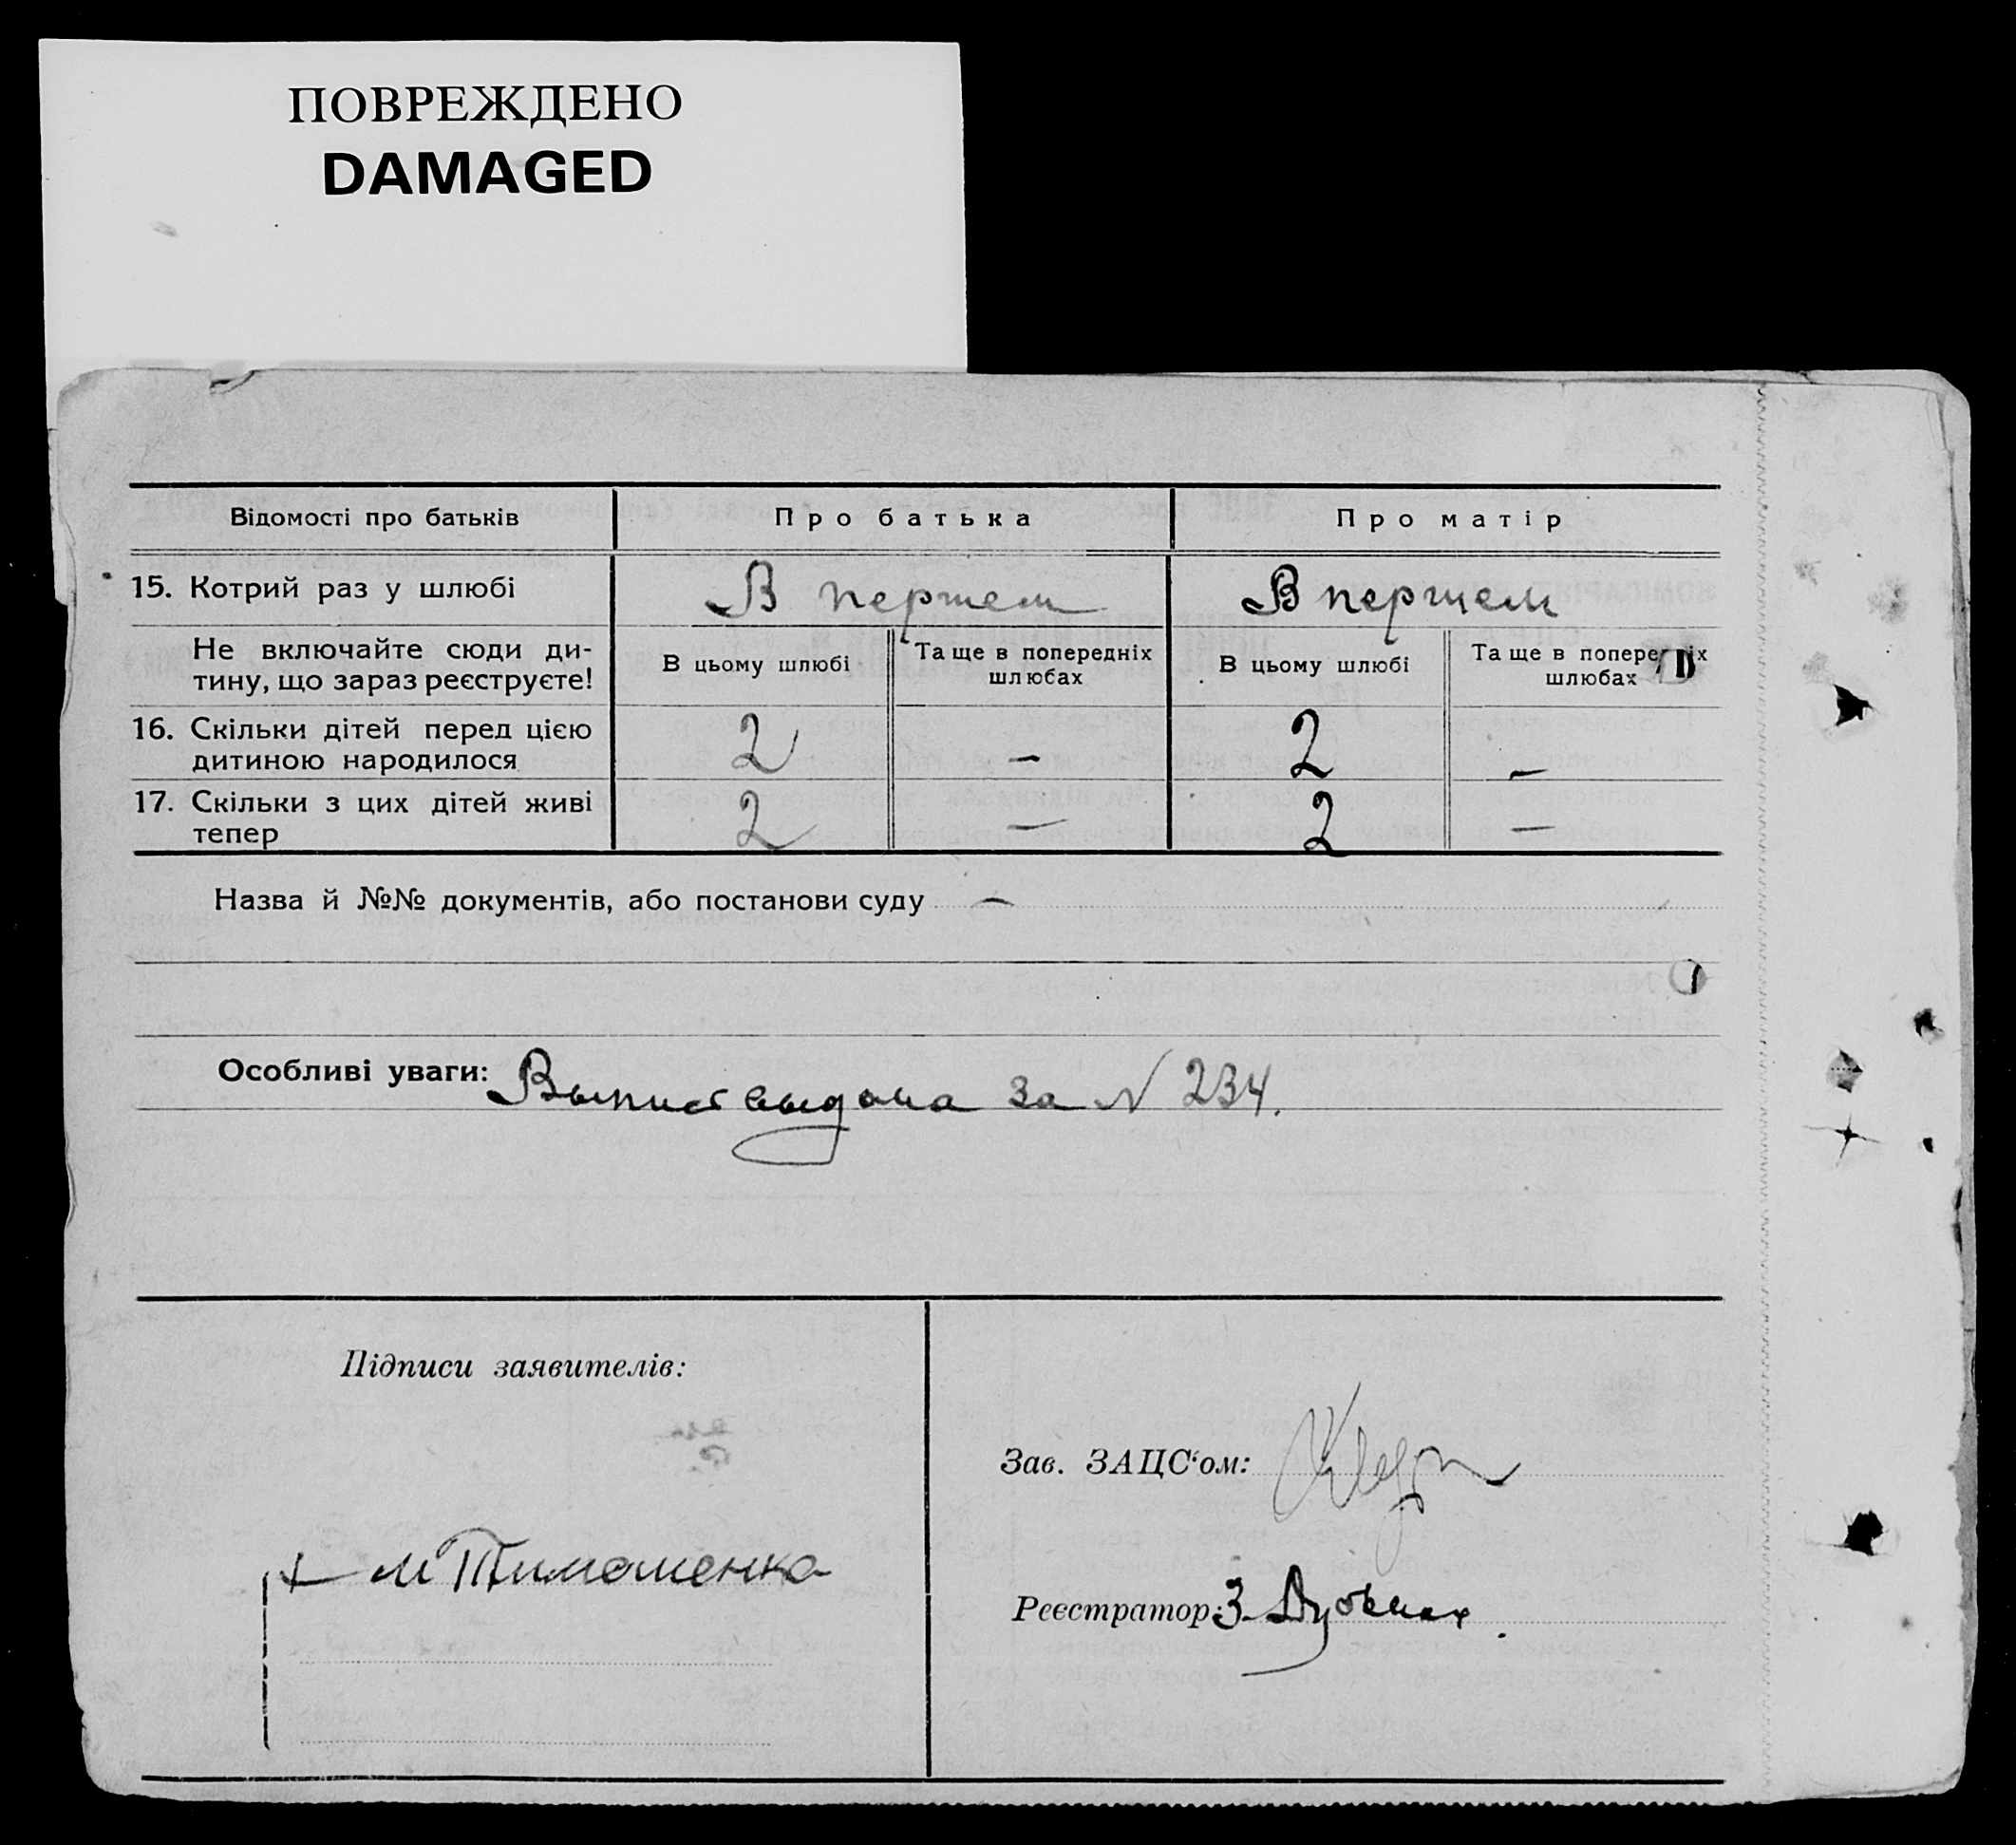 ПОВРЕЖДЕНО
DAMAGED
Відомості про батьків
Про батька
Про матір
15. Котрий раз у шлюбі
В першем
В першем
Не включайте сюди ди-
тину, що зараз реєструєте!
В цьому шлюбі
Та ще в попередніх
шлюбах
В цьому шлюбі
Та ще в попередніх
шлюбах
16. Скільки дітей перед цією
дитиною народилося
2
—
2
—
17. Скільки з цих дітей живі
тепер
2
—
2
—
Назва й №№ документів, або постанови суду —
Особливі уваги: Выпис выдана за N 234.
Підписи заявителів:
Зав. ЗАЦС'ом:
+ М Тимошенко
Реєстратор: З.